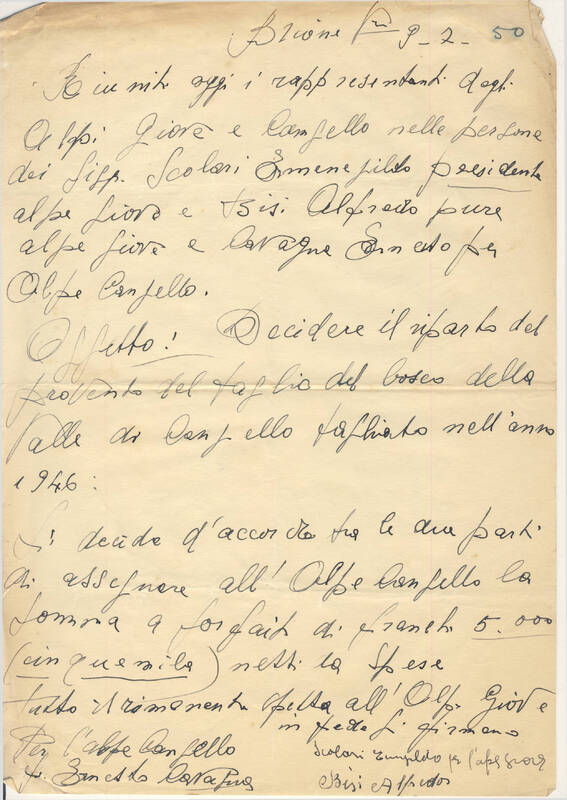 Brione 9-2-50
Riuniti oggi i rappresentanti degli
Alpi Giove e Cangello nelle persone
dei Sigg. Scolari Ermenegildo presidente
alpe Giove e Bisi Alfredo pure
alpe Giove e Cavagna Ernesto per
Alpe Cangello.
Oggetto! Decidere il riparto del
provento del taglio del bosco della
Valle di Cangello tagliato nell'anno
1946:
Si decide d'accordo tra le due parti
di assegnare all'Alpe Cangello la
somma a forfait di franchi 5.000
(cinquemila) netti la spese
tutto il rimanente spetta all'Alpe Giove
in fede si firmano
Per l'alpe Cangello
Scolari per l'alpe Giove
f. Ernesto Cavagna
Bisi Alfredo